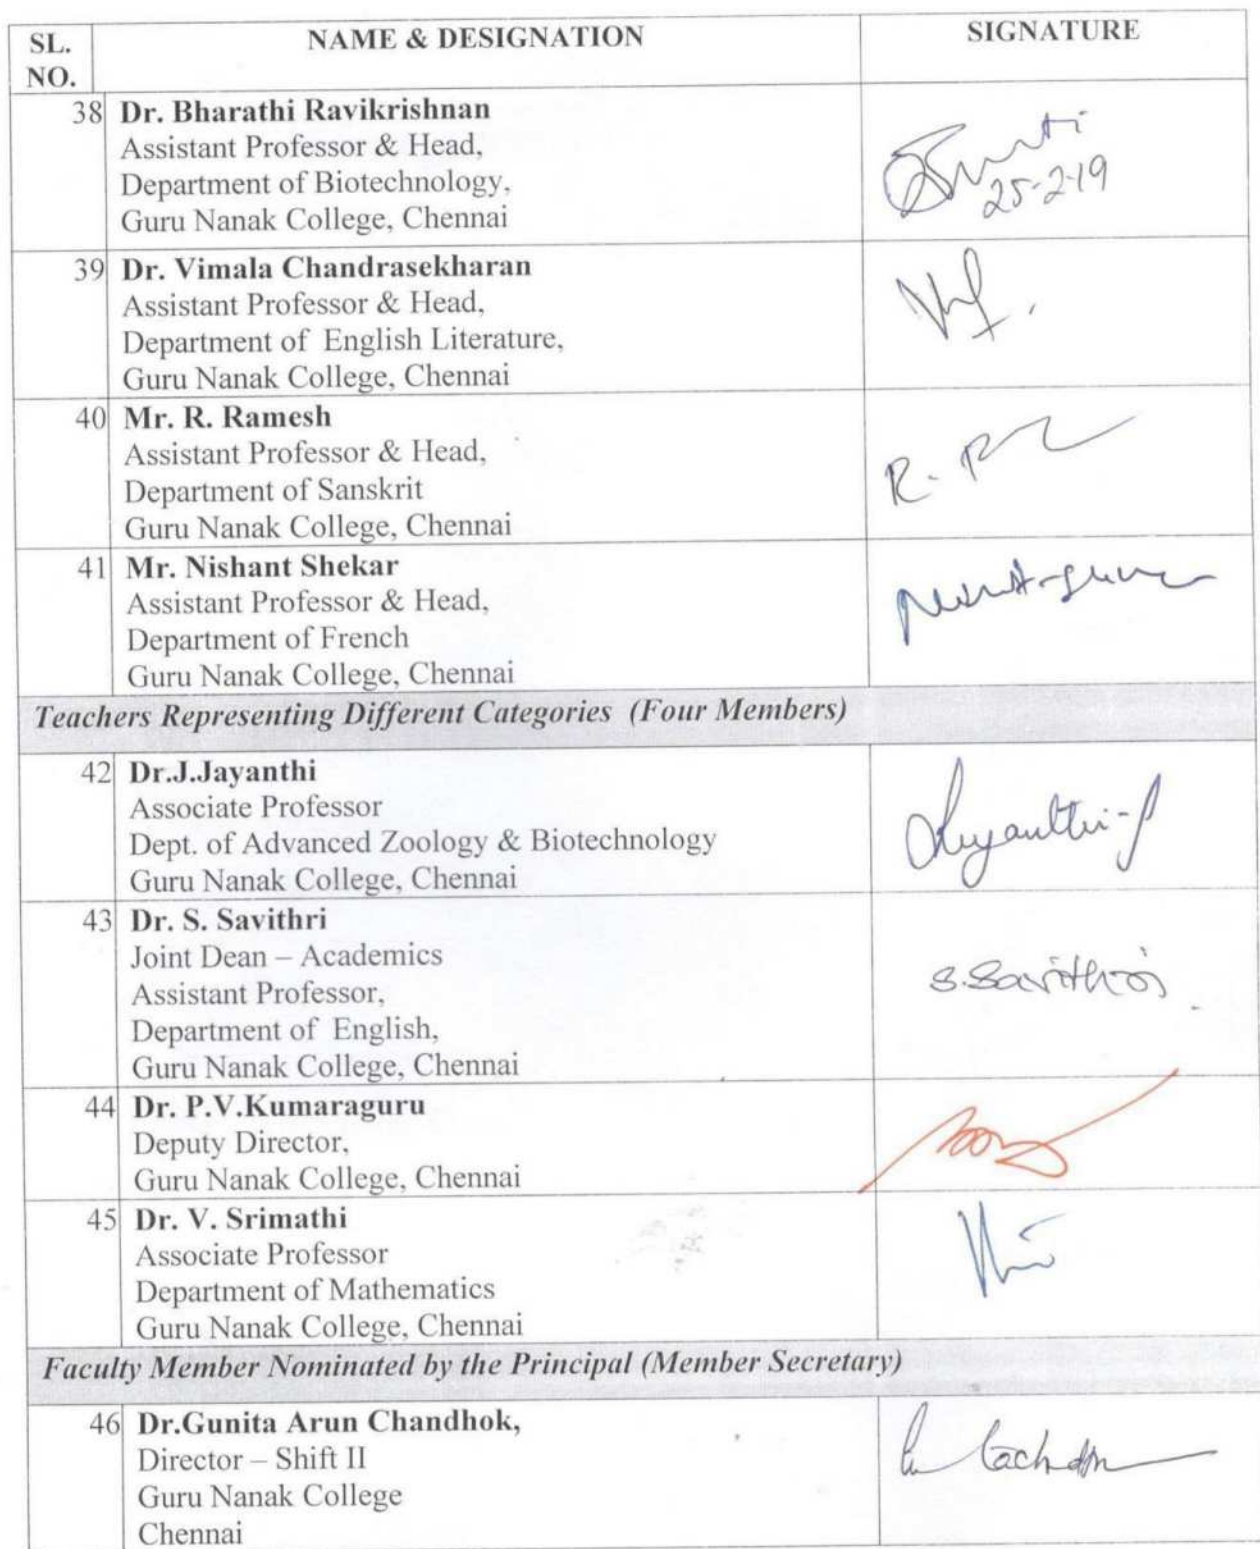 SL.
NO.
NAME & DESIGNATION
SIGNATURE
38
Dr. Bharathi Ravikrishnan
Assistant Professor & Head,
Department of Biotechnology,
Guru Nanak College, Chennai
25-2-19
39
Dr. Vimala Chandrasekharan
Assistant Professor & Head,
Department of English Literature,
Guru Nanak College, Chennai
40
Mr. R. Ramesh
Assistant Professor & Head,
Department of Sanskrit
Guru Nanak College, Chennai
R.
41
Mr. Nishant Shekar
Assistant Professor & Head,
Department of French
Guru Nanak College, Chennai
Teachers Representing Different Categories (Four Members)
42
Dr.J.Jayanthi
Associate Professor
Dept. of Advanced Zoology & Biotechnology
Guru Nanak College, Chennai
43
Dr. S. Savithri
Joint Dean – Academics
Assistant Professor,
Department of English,
Guru Nanak College, Chennai
S.Savithri
44
Dr. P.V.Kumaraguru
Deputy Director,
Guru Nanak College, Chennai
45
Dr. V. Srimathi
Associate Professor
Department of Mathematics
Guru Nanak College, Chennai
Faculty Member Nominated by the Principal (Member Secretary)
46
Dr.Gunita Arun Chandhok,
Director – Shift II
Guru Nanak College
Chennai